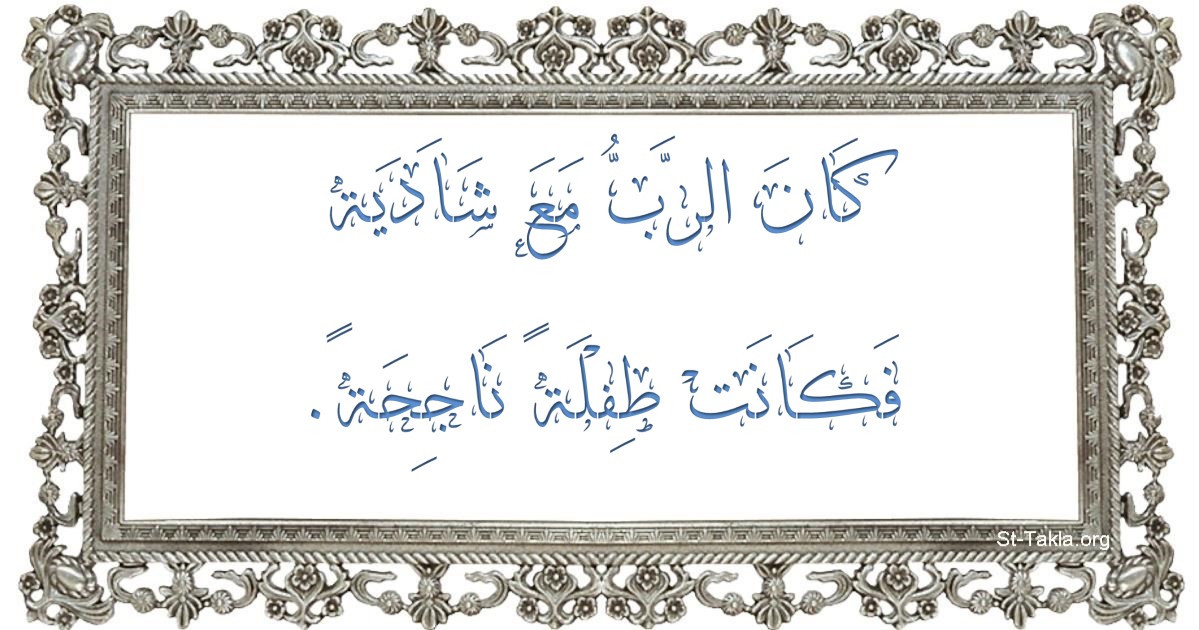 كَانَ الرَّبُّ مَعَ شَادَيَة
فَكَانَت طِفْلَةً نَاجِحَةً.
St-Takla.org